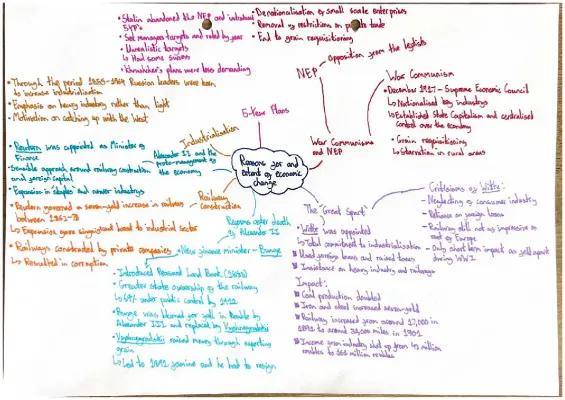 • Stalin abandoned the NEP and introduced
5YPs
• Set managers targets and ruled by year
• Unrealistic targets
↳ Had some success
• Khrushchev's plans were less demanding
• Denationalisation of small scale enterprises
• Removal of restrictions on private trade
• End to grain requisitioning
opposition from the leftists
NEP
War Communism
• December 1917 - Supreme Economic Council
↳ Nationalised key industrys
↳ Established State Capitalism and centralised
control over the economy
• Grain requisitioning
↳ Starvation in rural areas
War Communism
and NEP
5-Year Plans
• Through the period 1855-1964 Russian leaders were keen
to increase industrialisation
• Emphasis on heavy industry rather than light
• Motivation on catching up with the West
Industrialisation
• Reutern was appointed as Minister of
Finance
• Sensible approach around railway construction
and foreign capital
• Expansion in staples and newer industrys
Alexander II and the
management of
the economy
Reasons for and
extent of economic
change
Railway
Construction
• Reutern governed a seven-fold increase in railways
between 1862-78
↳ Expensive gave significant boost to industrial sector
• Railways constructed by private companies
↳ Resulted in corruption
Reforms after death
of Alexander II
• New finance minister - Bunge
• Introduced Peasant Land Bank (1883)
• Greater state ownership of the railway
↳ 69% under public control by 1912
• Bunge was blamed for fall in Rouble by
Alexander III and replaced by Vyshnegradskii
• Vyshnegradskii raised money through exporting
grain
↳ Led to 1891 famine and he had to resign
The 'Great Spurt'
• Witte was appointed
↳ Total commitment to industrialisation
• Used foreign loans and raised taxes
• Insistence on heavy industry and railways
Impact:
Coal production doubled
Iron and steel increased seven-fold
Railway increased from around 17,000 in
1891 to around 31,000 miles in 1901
Income from industry shot up from 42 million
roubles to 161 million roubles
Criticisms of Witte:
- Neglecting of consumer industry
- Reliance on foreign loans
- Railway still not as impressive as
rest of Europe
- Only short term impact as fell apart
during WWI